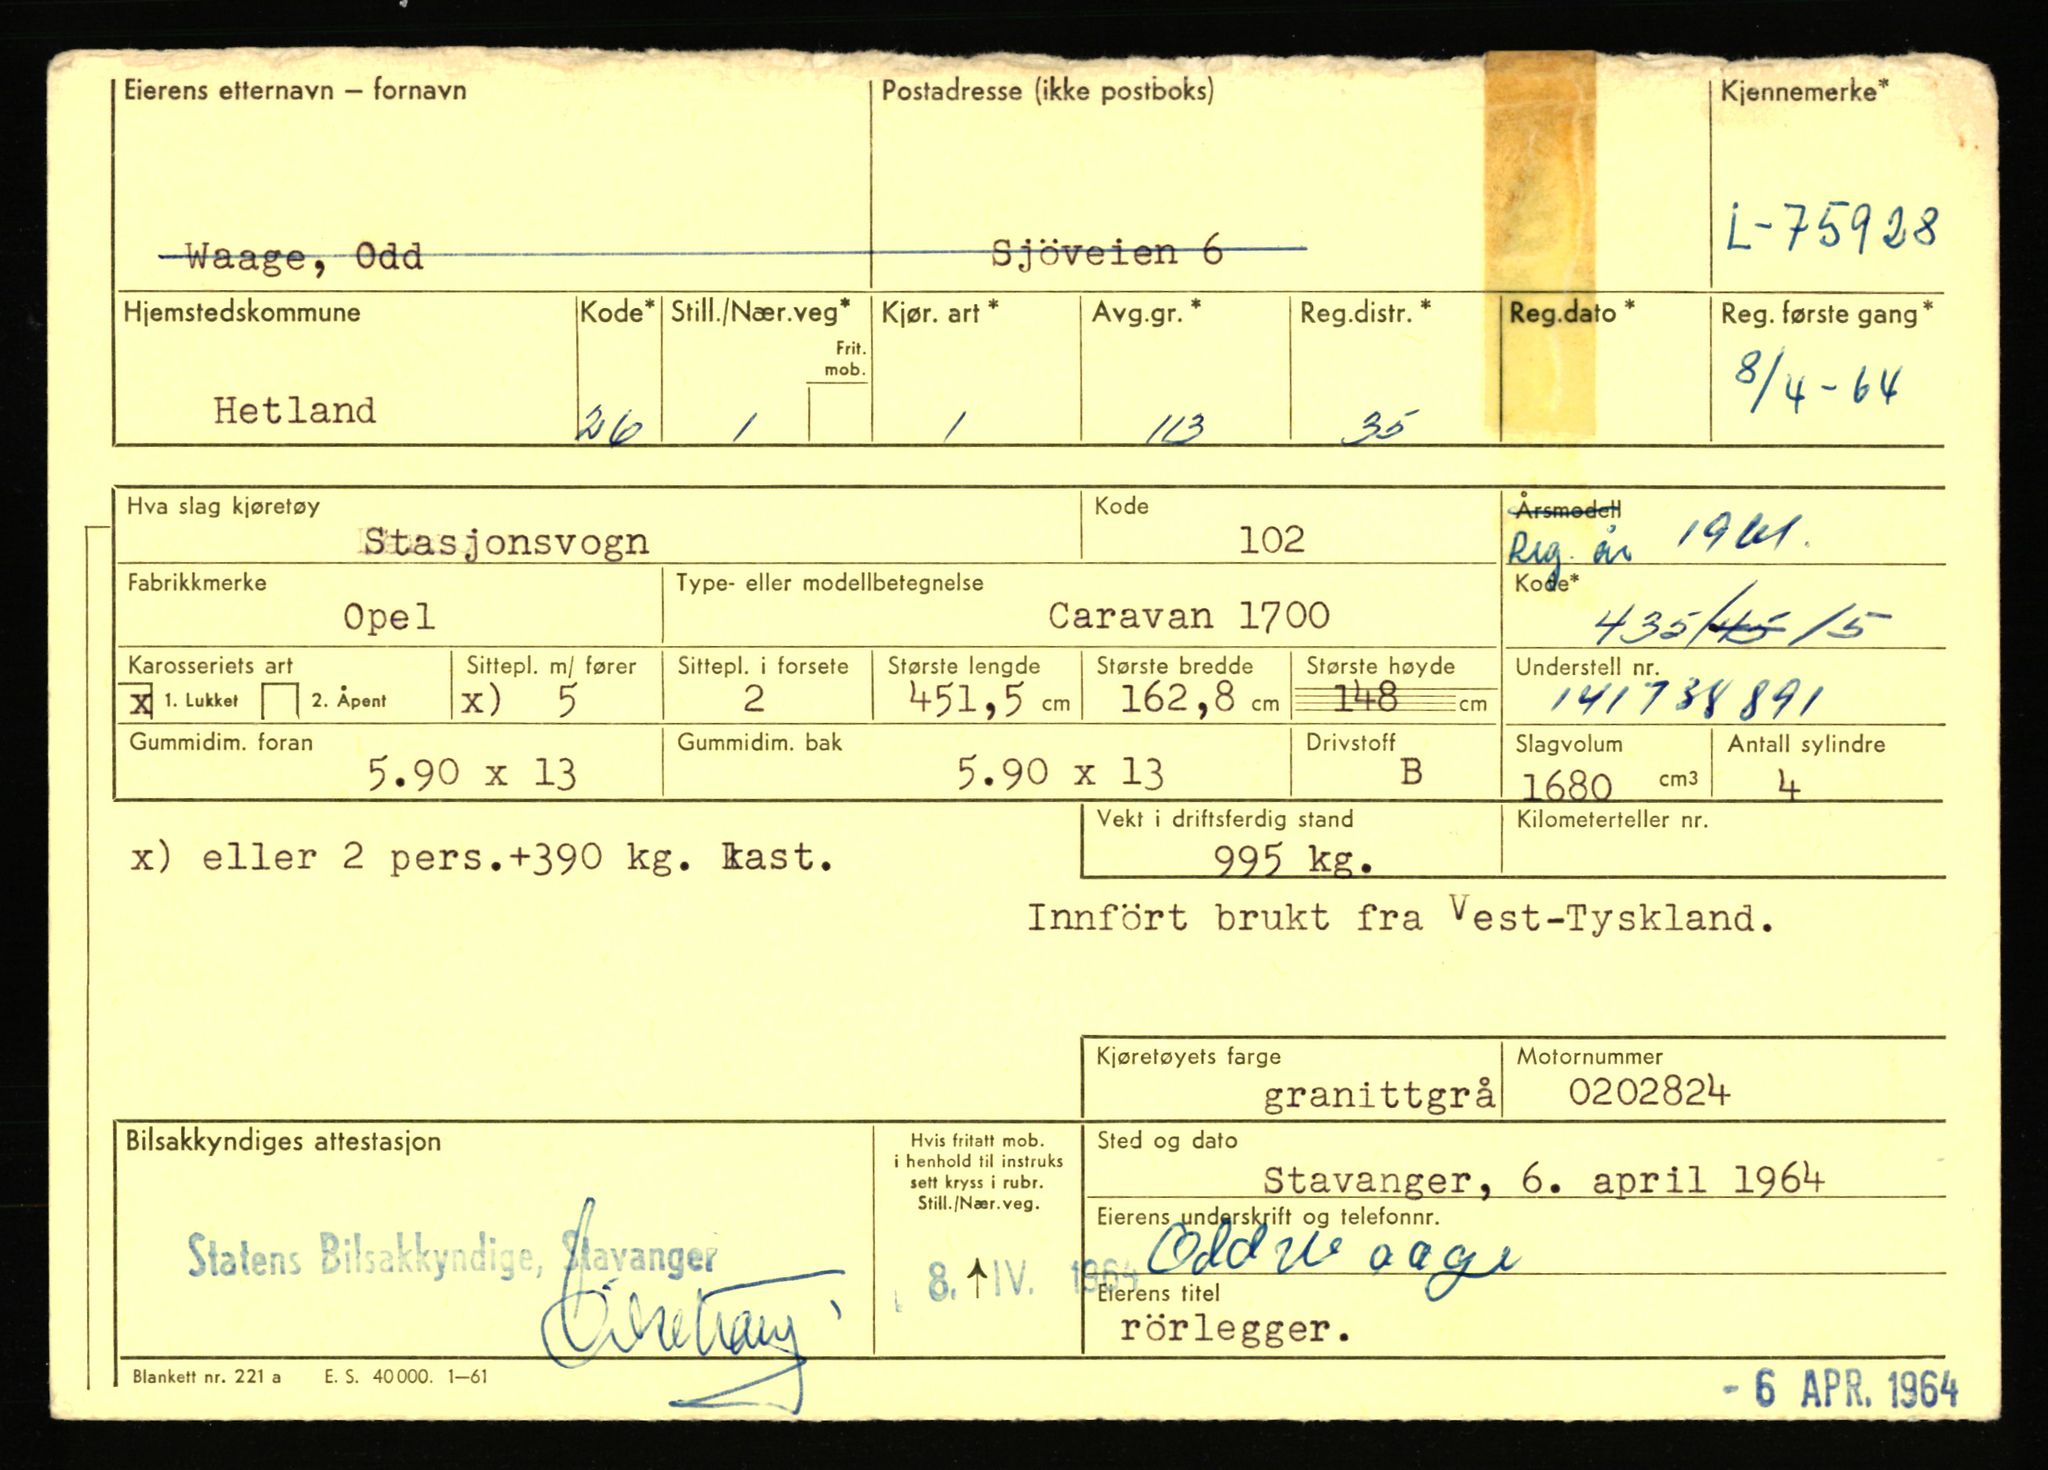 Eierens etternavn – fornavn Postadresse (ikke postboks) Kjennemerke*
Waage, Odd Sjöveien 6 L-75928
Hjemstedskommune Kode* Still./Nær.veg* Kjør. art * Avg.gr. * Reg.distr. * Reg.dato * Reg. første gang*
Frit.
mob.
Hetland 26 1 1 113 35 8/4-64
Hva slag kjøretøy Kode Årsmodell
Stasjonsvogn 102 Reg. år 1961.
Fabrikkmerke Type- eller modellbetegnelse Kode*
Opel Caravan 1700 435/45/5
Karosseriets art Sittepl. m/ fører Sittepl. i forsete Største lengde Største bredde Største høyde Understell nr.
x 1. Lukket 2. Åpent x) 5 2 451,5 cm 162,8 cm 148 cm 141738891
Gummidim. foran Gummidim. bak Drivstoff Slagvolum Antall sylindre
5.90 x 13 5.90 x 13 B 1680 cm3 4
Vekt i driftsferdig stand Kilometerteller nr.
x) eller 2 pers.+390 kg. last. 995 kg.
Innfört brukt fra Vest-Tyskland.
Kjøretøyets farge Motornummer
granittgrå 0202824
Bilsakkyndiges attestasjon Hvis fritatt mob. Sted og dato
i henhold til instruks
sett kryss i rubr.
Still./Nær.veg.
Stavanger, 6. april 1964
Eierens underskrift og telefonnr.
Statens Bilsakkyndige, Stavanger Odd Waage
8. ↑ IV. 1964
Eierens titel
rörlegger.
Blankett nr. 221 a E. S. 40000. 1–61
- 6 APR. 1964